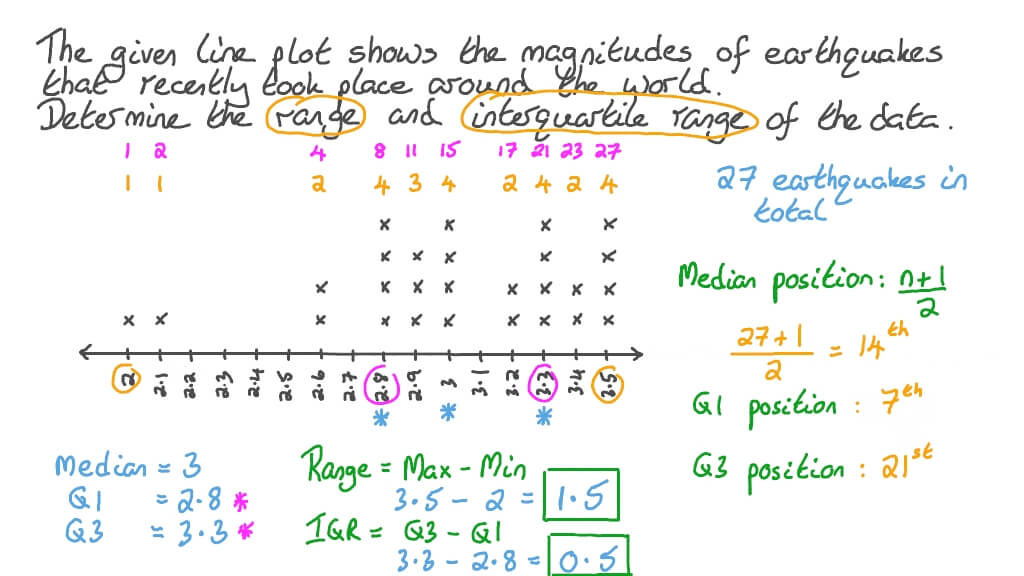 The given line plot shows the magnitudes of earthquakes
that recently took place around the world.
Determine the range and interquartile range of the data.
1 2 4 8 11 15 17 21 23 27
1 1 2 4 3 4 2 4 2 4
27 earthquakes in
total
Median position: n+1
2
27+1
2
= 14th
Q1 position : 7th
Q3 position : 21st
2 2.1 2.2 2.3 2.4 2.5 2.6 2.7 2.8 2.9 3 3.1 3.2 3.3 3.4 3.5
* * *
Median = 3
Q1 = 2.8 *
Q3 = 3.3 *
Range = Max - Min
3.5 - 2 = 1.5
IQR = Q3 - Q1
3.3 - 2.8 = 0.5